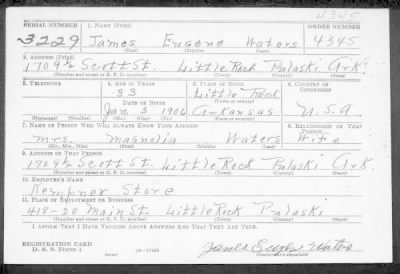 4345
SERIAL NUMBER 1. NAME (Print) ORDER NUMBER
3229 James Eugene Waters 4345
2. ADDRESS (Print)
1709½ Scott St. Little Rock Pulaski Ark.
(Number and street or R. F. D. number) (Town) (County) (State)
3. TELEPHONE 4. AGE IN YEARS 5. PLACE OF BIRTH 6. COUNTRY OF CITIZENSHIP
33 Little Rock
DATE OF BIRTH (Town or county)
Jan 3 1906 Arkansas U.S.A
(Exchange) (Number) (Mo.) (Day) (Yr.) (State or country)
7. NAME OF PERSON WHO WILL ALWAYS KNOW YOUR ADDRESS 8. RELATIONSHIP OF THAT PERSON
Mrs. Magnolia Waters Wife
(Mr., Mrs., Miss) (First) (Middle) (Last)
9. ADDRESS OF THAT PERSON
1709½ Scott St. Little Rock Pulaski Ark.
(Number and street or R. F. D. number) (Town) (County) (State)
10. EMPLOYER'S NAME
Kempner Store
11. PLACE OF EMPLOYMENT OR BUSINESS
418-20 Main St. Little Rock Pulaski
(Number and street or R. F. D. number) (Town) (County) (State)
I AFFIRM THAT I HAVE VERIFIED ABOVE ANSWERS AND THAT THEY ARE TRUE.
REGISTRATION CARD James Eugene Waters
D. S. S. Form 1 (over) (Registrant's signature)